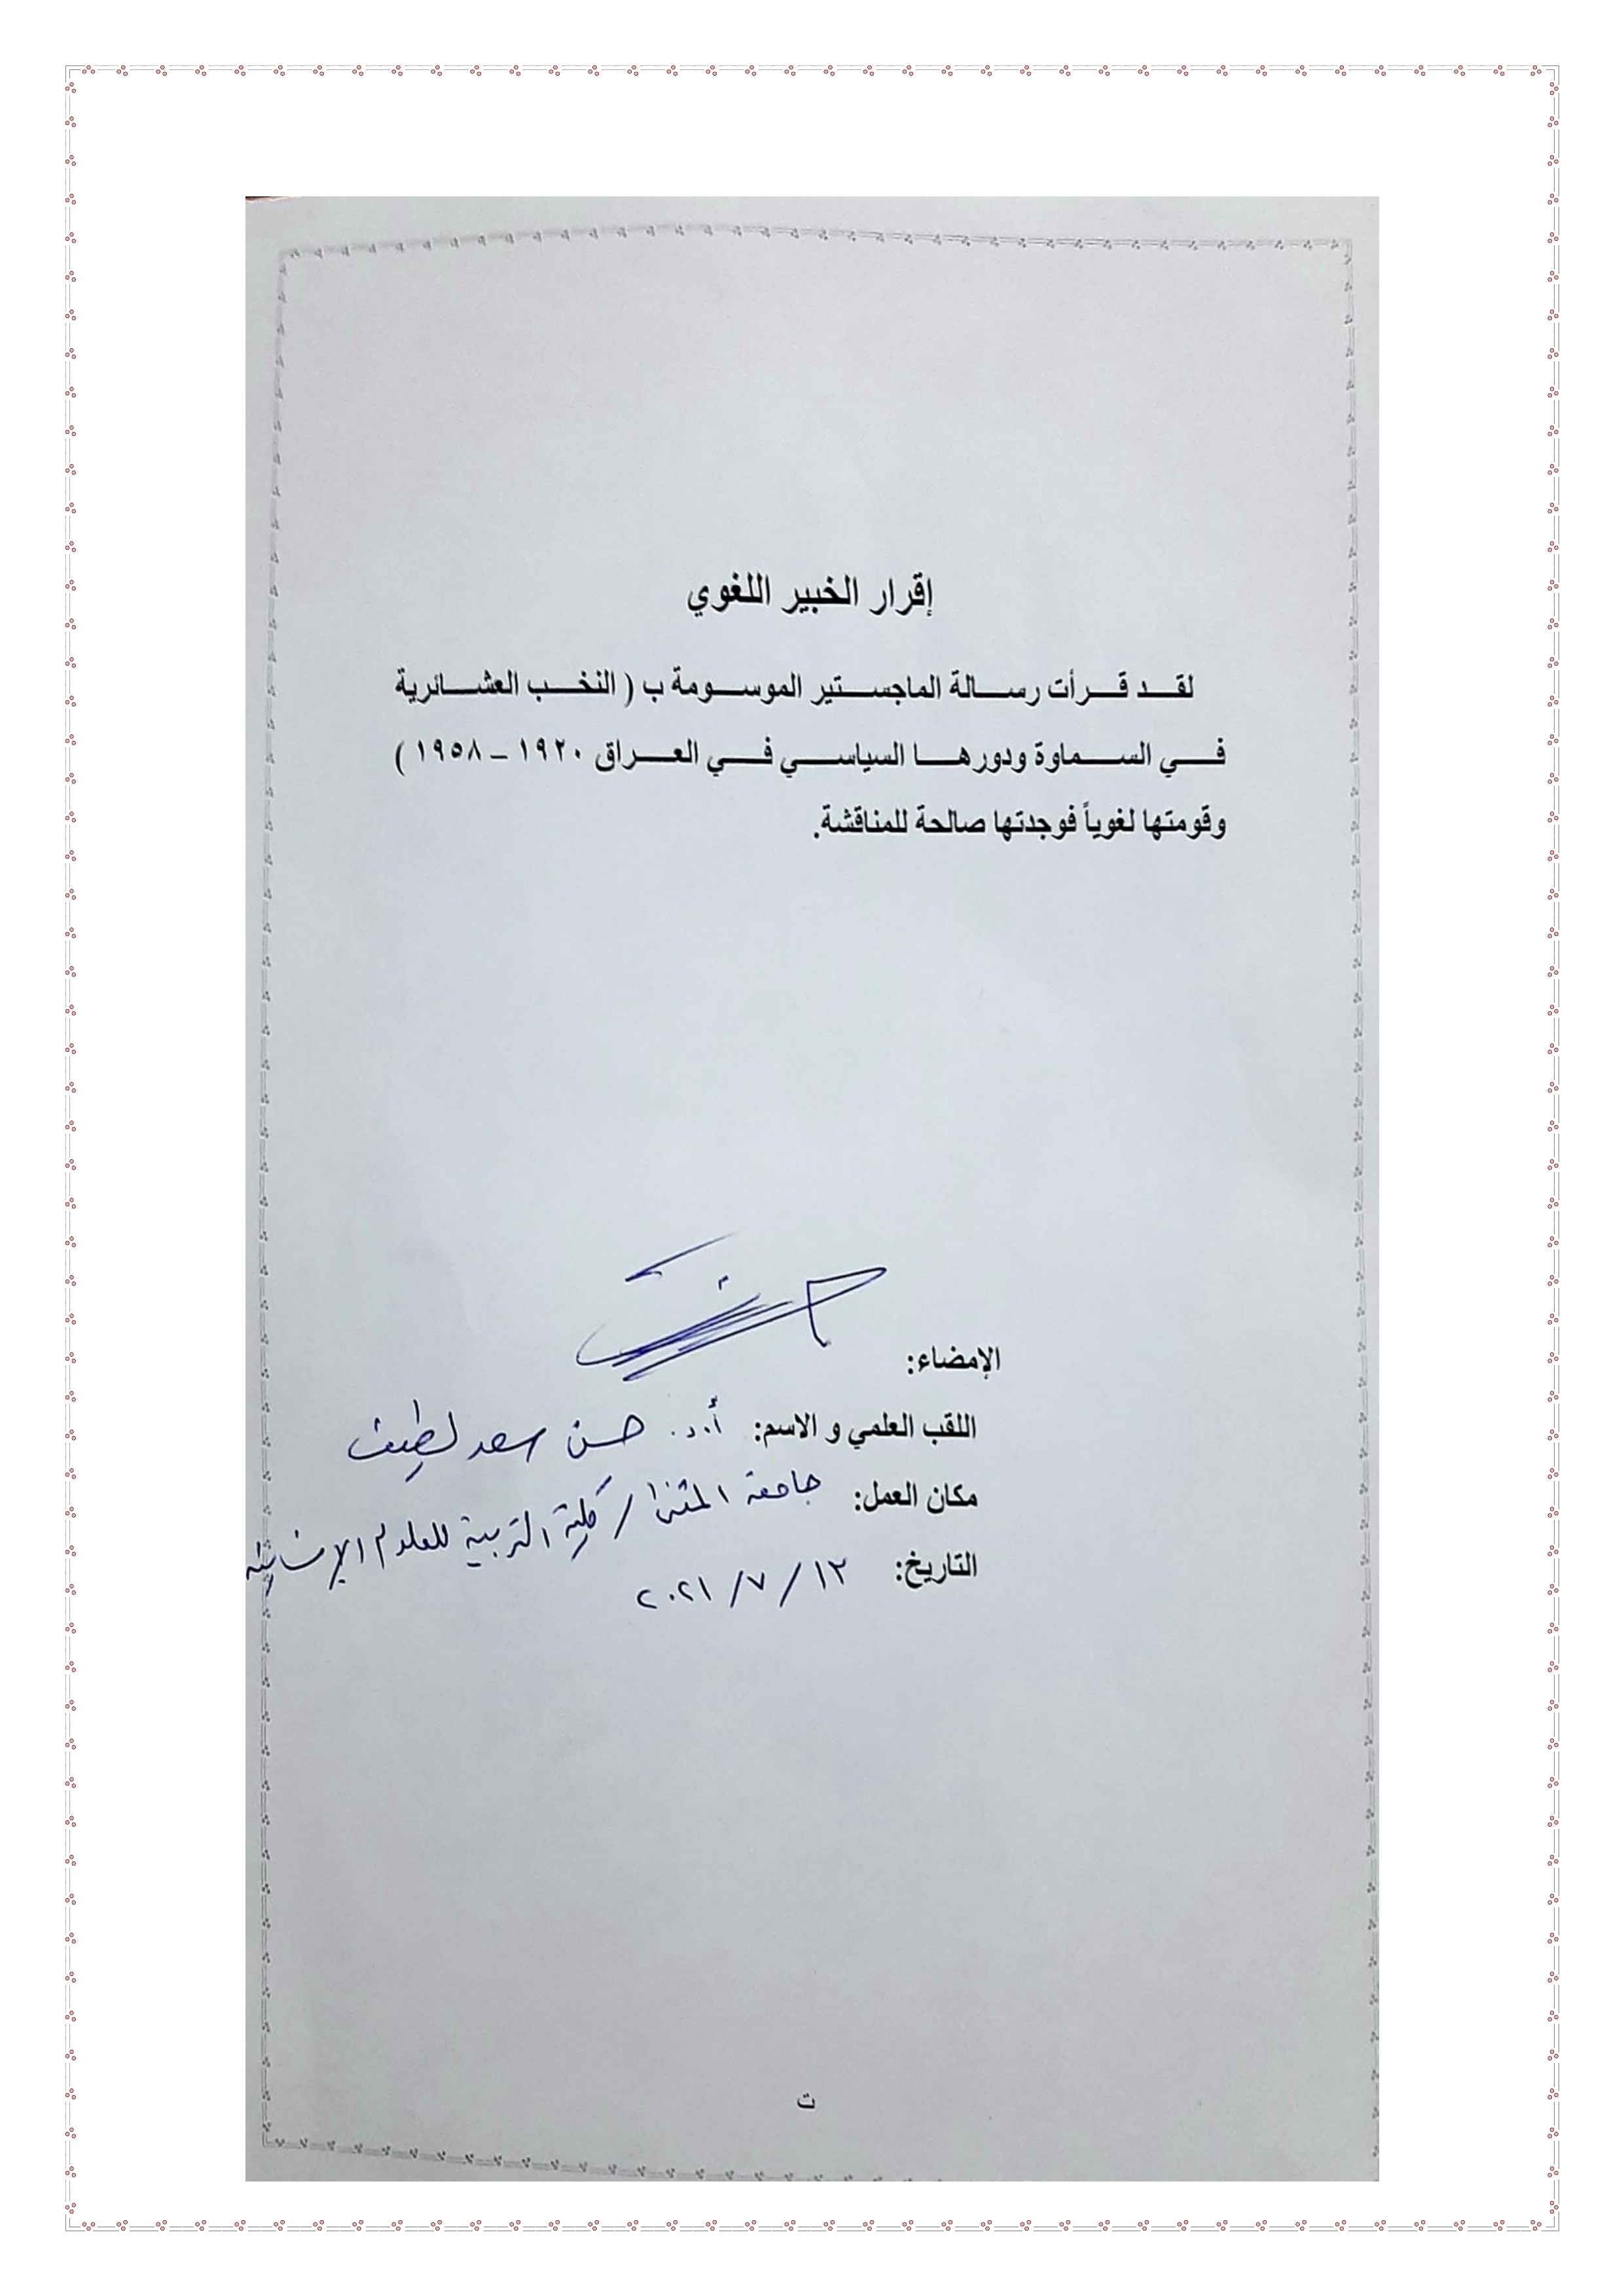 إقرار الخبير اللغوي
لقد قرأت رسالة الماجستير الموسومة ب ( النخب العشائرية
في السماوة ودورها السياسي في العراق ١٩٢٠ – ١٩٥٨ )
وقومتها لغوياً فوجدتها صالحة للمناقشة.
الإمضاء:
اللقب العلمي و الاسم: أ.د. حسن سعد لطيف
مكان العمل: جامعة المثنى / كلية التربية للعلوم الإنسانية
التاريخ: ١٢ / ٧ / ٢٠٢١
ت